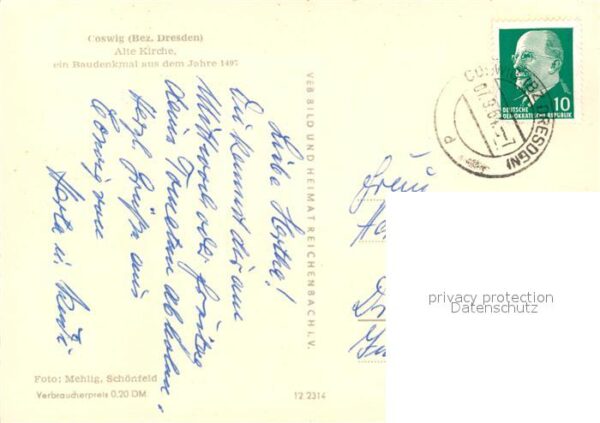 Coswig (Bez. Dresden)
Alte Kirche,
ein Baudenkmal aus dem Jahre 1497
Liebe Hertha!
Du kannst dir am
Mittwoch oder Freitag
deine Tomaten abholen.
Herzl. Grüße aus
Coswig von
Herta u.
VEB BILD UND HEIMAT REICHENBACH I. V.
DEUTSCHE
DEMOKRATISCHE REPUBLIK
10
COSWIG (BZ. DRESDEN)
P
Frau
privacy protection
Datenschutz
Foto: Mehlig, Schönfeld
Verbraucherpreis 0,20 DM
12 2314